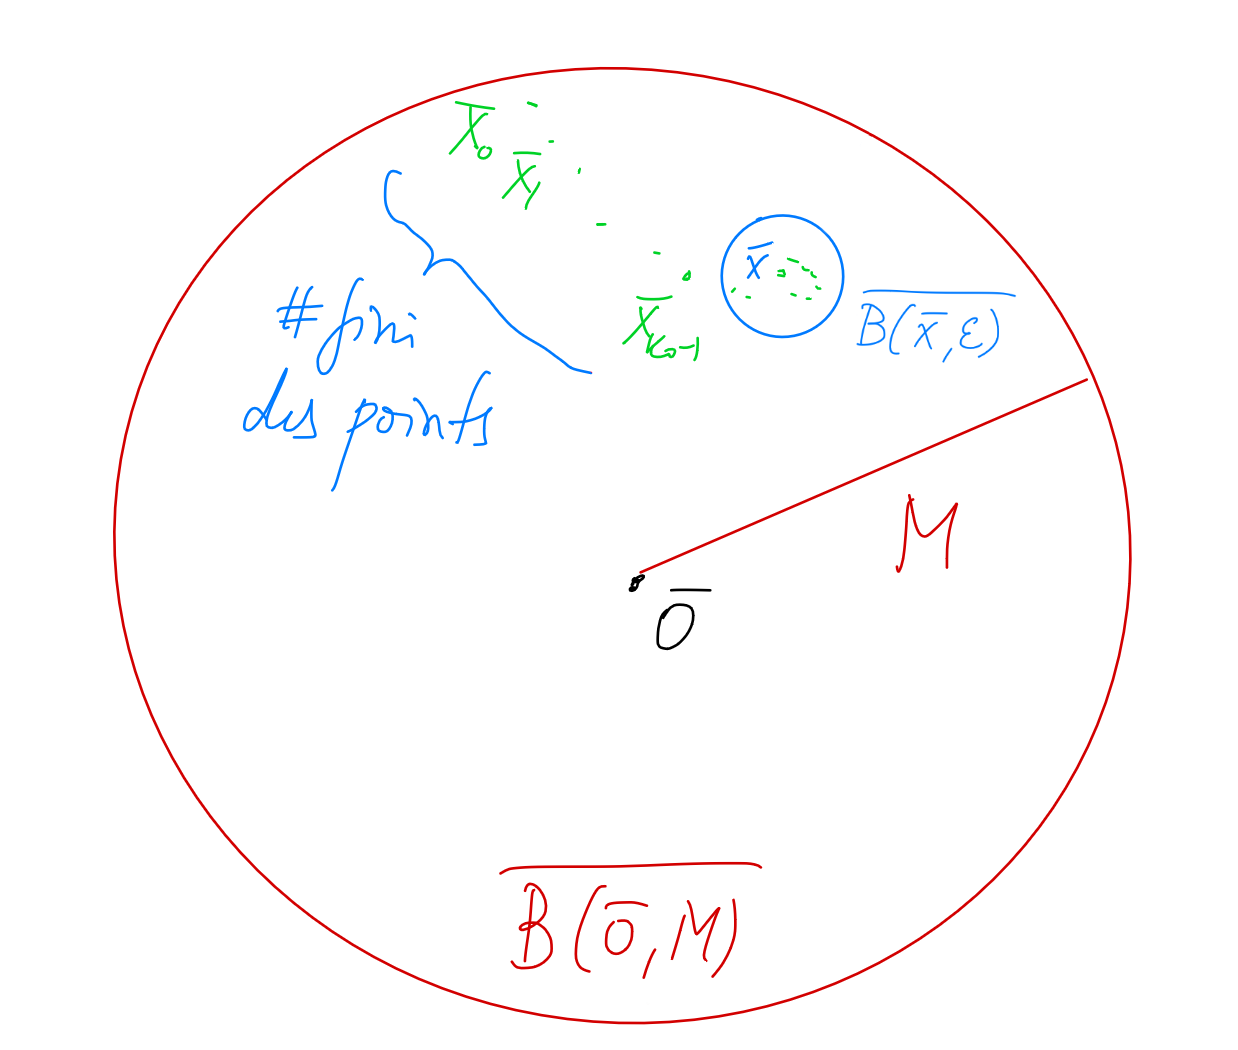 x̅₀
x̅₁
x̅
x̅ₖ₀₋₁
\overline{B(x̅,ε)}
# fini
des points
M
O̅
\overline{B(o̅,M)}